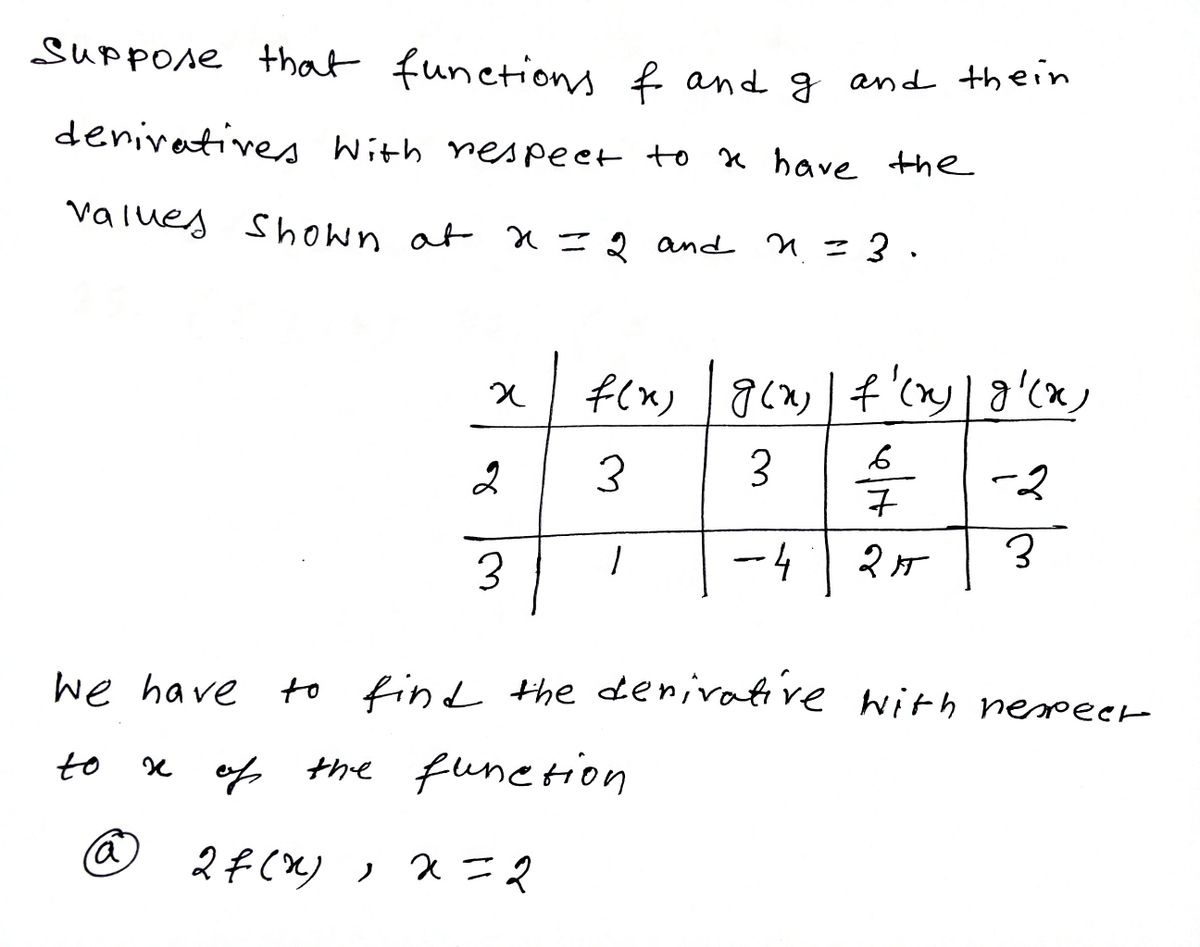 Suppose that functions f and g and their
derivatives with respect to x have the
values shown at x = 2 and x = 3.
x | f(x) | g(x) | f'(x) | g'(x)
2 | 3 | 3 | 6/7 | -2
3 | 1 | -4 | 2π | 3
We have to find the derivative with respect
to x of the function
ⓐ 2f(x), x = 2